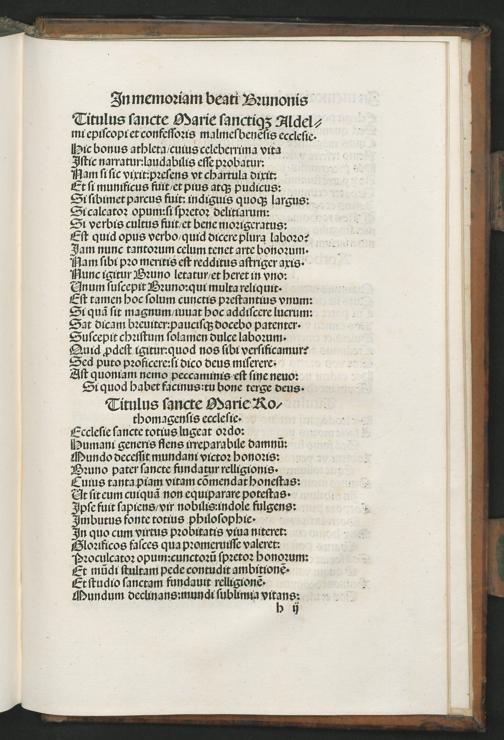 In memoriam beati Brunonis
Titulus sancte Marie sanctiqȝ Aldel⸗
mi episcopi et confessoris malmesbenesis ecclesie.
Hic bonus athleta/cuius celeberrima vita
Istic narratur:laudabilis esse probatur:
Nam si sic vixit:presens vt chartula dixit:
Et si munificus fuit/et pius atqȝ pudicus:
Si sibimet parcus fuit:indiguis quoqȝ largus:
Si calcator opum:si spretor delitiarum:
Si verbis cultus fuit/et bene morigeratus:
Est quid opus verbo/quid dicere plura laboro?
Iam nunc tantorum celum tenet arte bonorum.
Nam sibi pro meritis est redditus astriger axis.
Nunc igitur Bruno letatur/et heret in vno:
Unum suscepit Bruno:qui multa reliquit.
Est tamen hoc solum cunctis prestantius vnum:
Si quā sit magnum iuuat hoc addiscere lucrum:
Sat dicam breuiter:paucisqȝ docebo patenter.
Suscepit christum solamen dulce laborum.
Quid ꝓdest igitur:quod nos sibi versificamur?
Sed puto proficere:si dico deus miserere.
Ast quoniam nemo peccaminis est sine neuo:
Si quod habet facinus:tu bone terge deus.
Titulus sancte Marie Ro⸗
thomagensis ecclesie.
Ecclesie sancte totius lugeat ordo:
Humani generis flens irreparabile damnū:
Mundo decessit mundani victor honoris:
Bruno pater sancte fundatur relligionis.
Cuius tanta piam vitam cōmendat honestas:
Ut sit eum cuiquā non equiparare potestas.
Ipse fuit sapiens/vir nobilis:indole fulgens:
Imbutus fonte totius philosophie.
In quo cum virtus probitatis viua niteret:
Glorificos fasces qua promeruisse valeret:
Proculcator opum:cunctorū spretor honorum:
Et mūdi stultam pede contudit ambitionē.
Et studio sanctam fundauit relligionē.
Mundum declinans:mundi sublimia vitans:
b ij